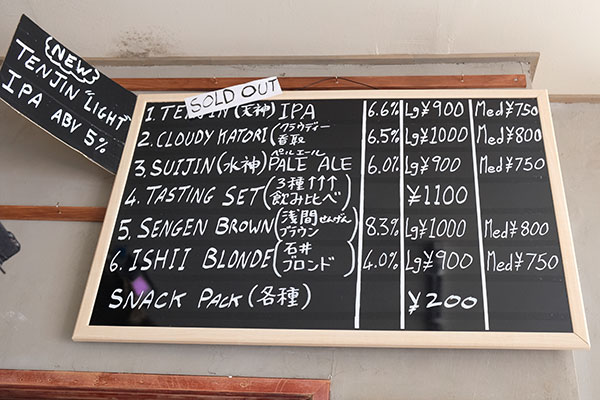 {NEW}
TENJIN "LIGHT"
IPA ABV 5%
SOLD OUT
1. TENJIN (天神) IPA 6.6% Lg ¥900 Med ¥750
2. CLOUDY KATORI (クラウディー香取) 6.5% Lg ¥1000 Med ¥800
3. SUIJIN (水神) PALE ALE ペールエール 6.0% Lg ¥900 Med ¥750
4. TASTING SET (3種↑↑↑飲み比べ) ¥1100
5. SENGEN BROWN (浅間せんげんブラウン) 8.3% Lg ¥1000 Med ¥800
6. ISHII BLONDE (石井ブロンド) 4.0% Lg ¥900 Med ¥750
SNACK PACK (各種) ¥200